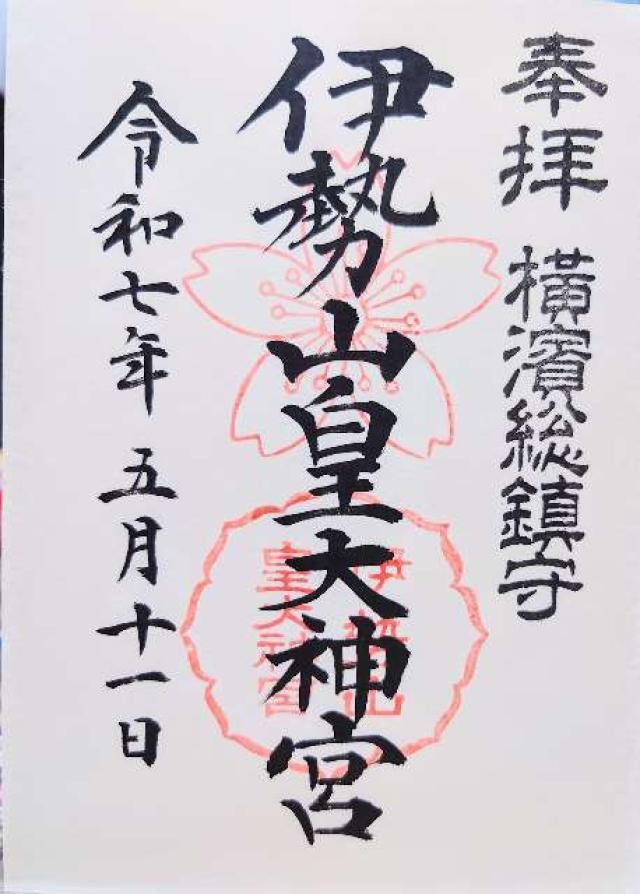 奉拝 横濱総鎮守
伊勢山皇大神宮
伊勢山
皇大神宮
令和七年五月十一日